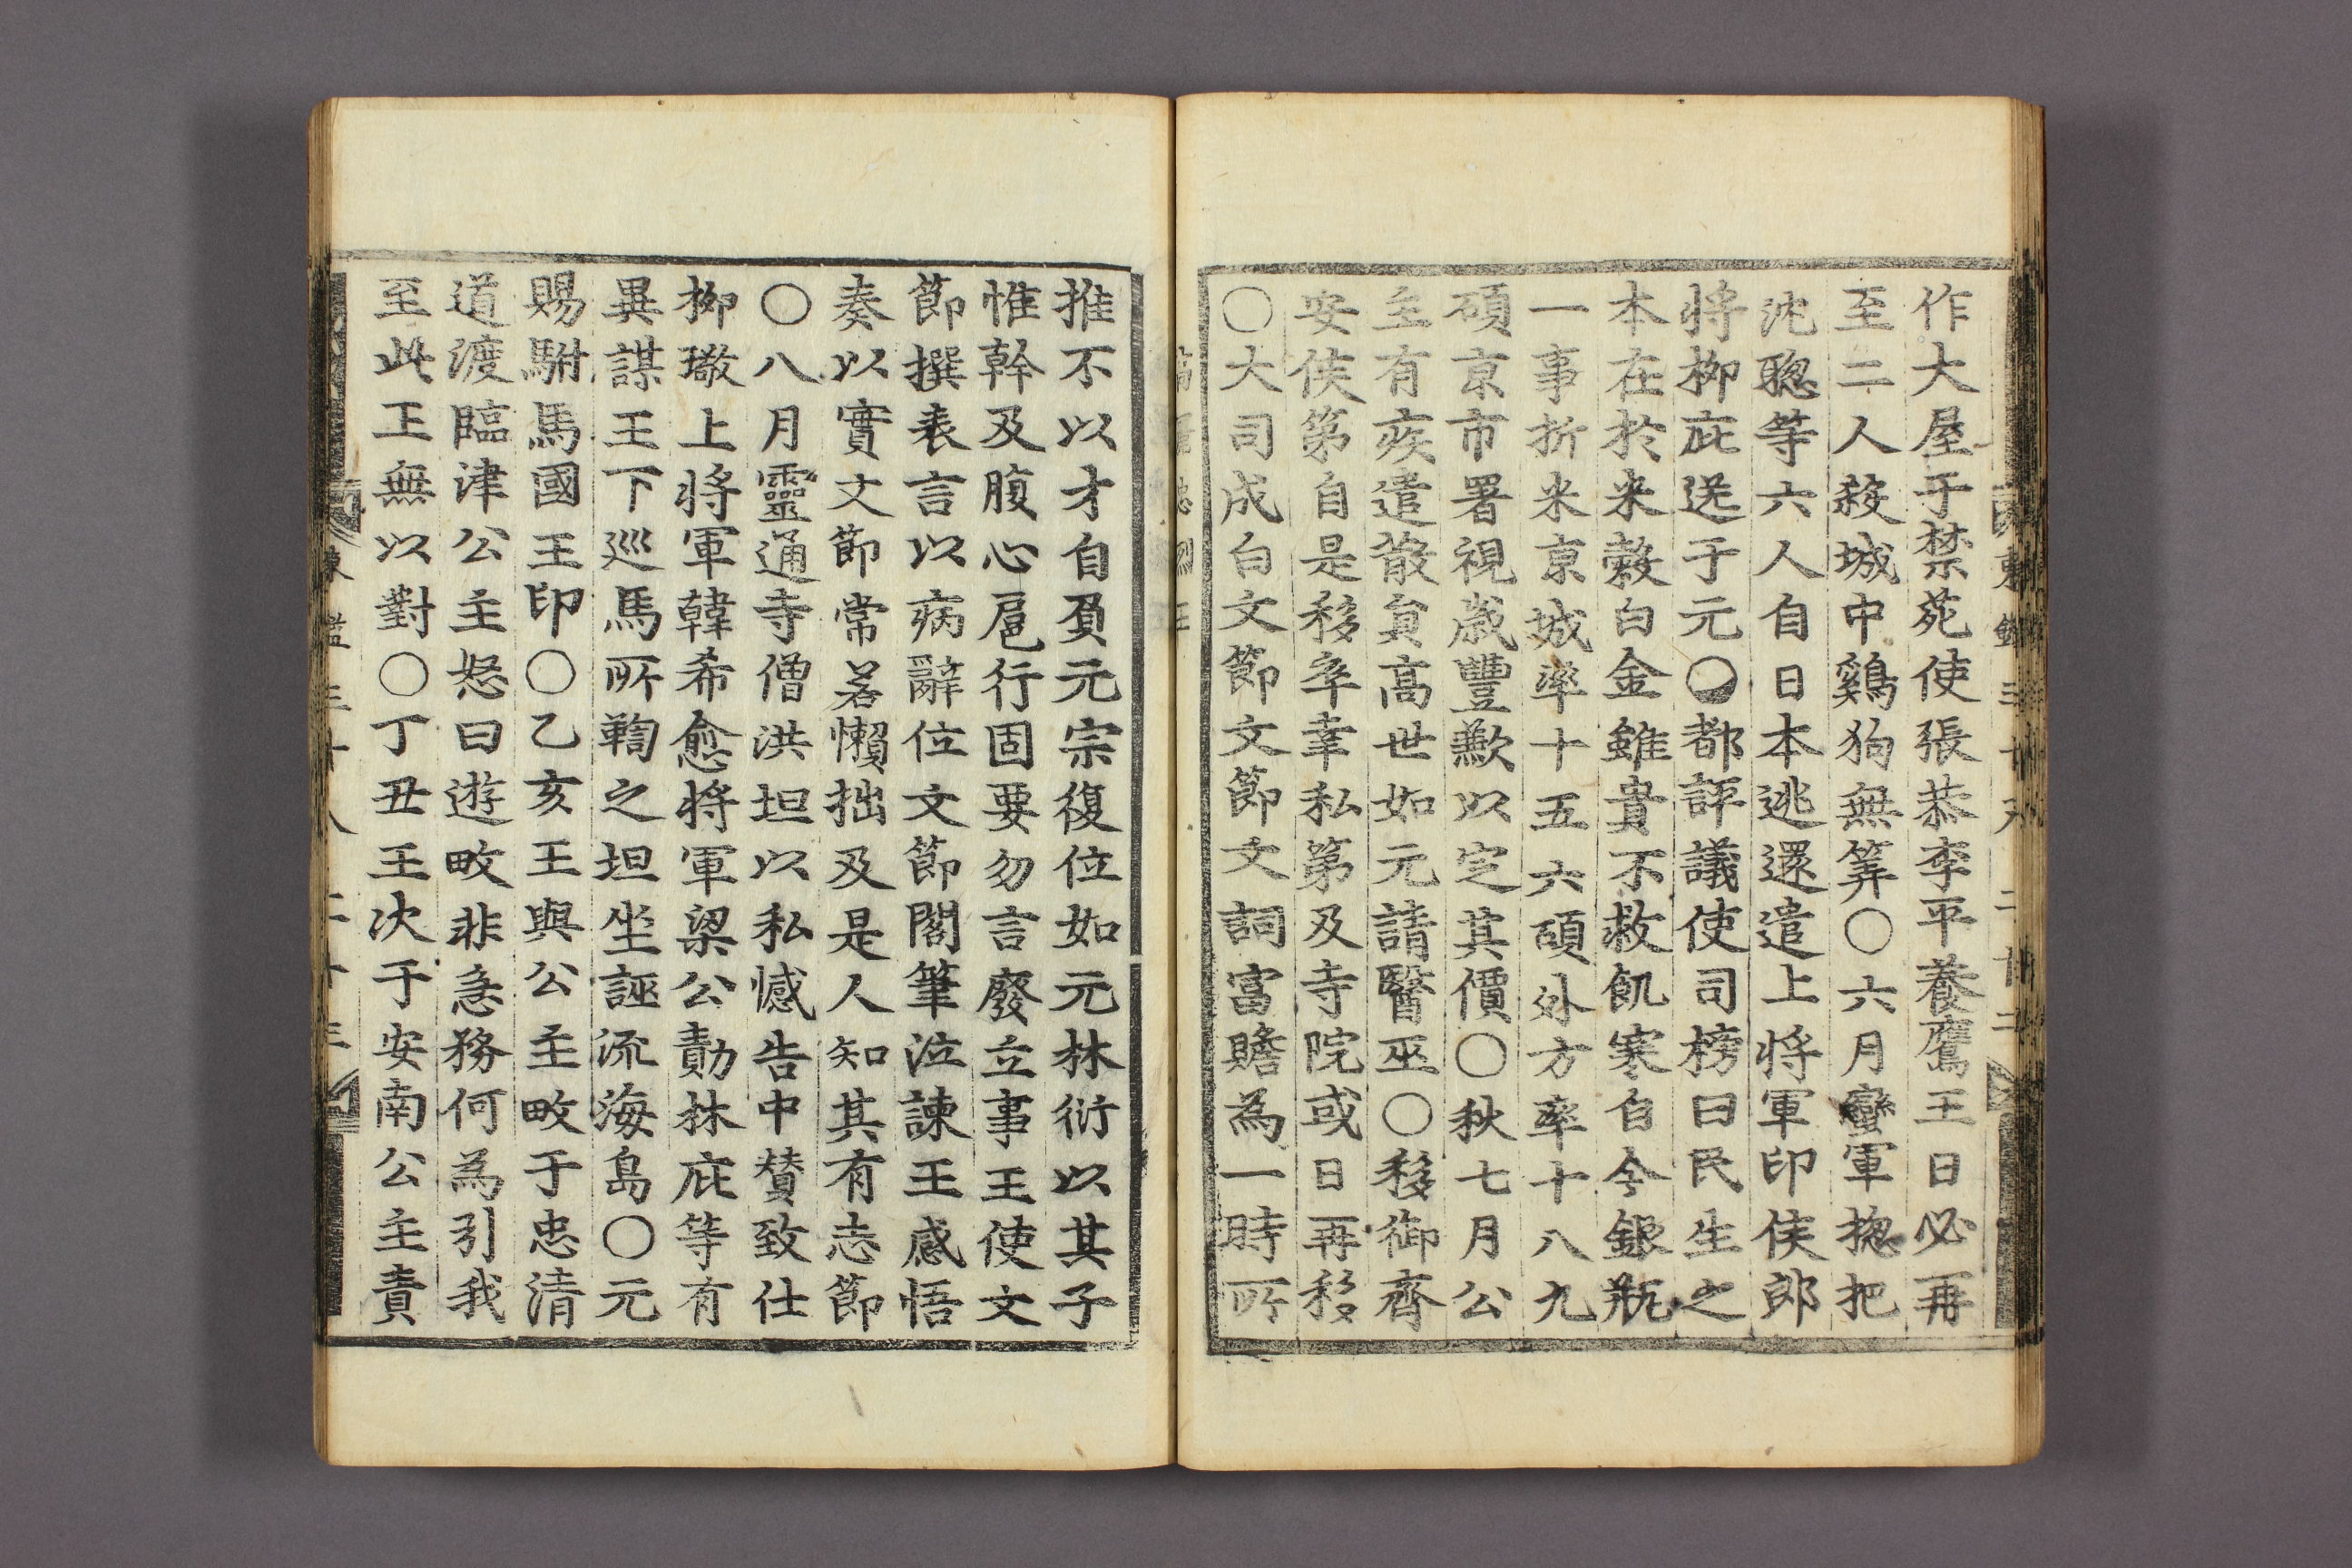 作大屋于禁苑使張恭李平養鷹王日必再
至二人殺城中鷄狗無筭〇六月蠻軍揔把
沈聦等六人自日本逃還遣上將軍印侯郎
將柳庇送于元〇都評議使司榜曰民生之
本在於米糓白金雖貴不救飢寒自今銀瓶
一事折米京城率十五六碩外方率十八九
碩京市署視歲豐歉以定其價〇秋七月公
主有疾遣散貟高世如元請醫巫〇移御齊
安侯第自是移卒幸私第及寺院或日再移
〇大司成白文節文節文詞富贍為一時所
推不以才自負元宗復位如元林衍以其子
惟幹及腹心扈行固要勿言廢立事王使文
節撰表言以病辭位文節閣筆泣諫王感悟
奏以實文節常若懶拙及是人知其有志節
〇八月靈通寺僧洪坦以私憾告中賛致仕
柳璥上將軍韓希愈將軍梁公勣林庇等有
異謀王下巡馬所鞫之坦坐誣流海島〇元
賜駙馬國王印〇乙亥王與公主畋于忠清
道渡臨津公主怒曰遊畋非急務何為引我
至此王無以對〇丁丑王次于安南公主責
東鑑三十八 二十三